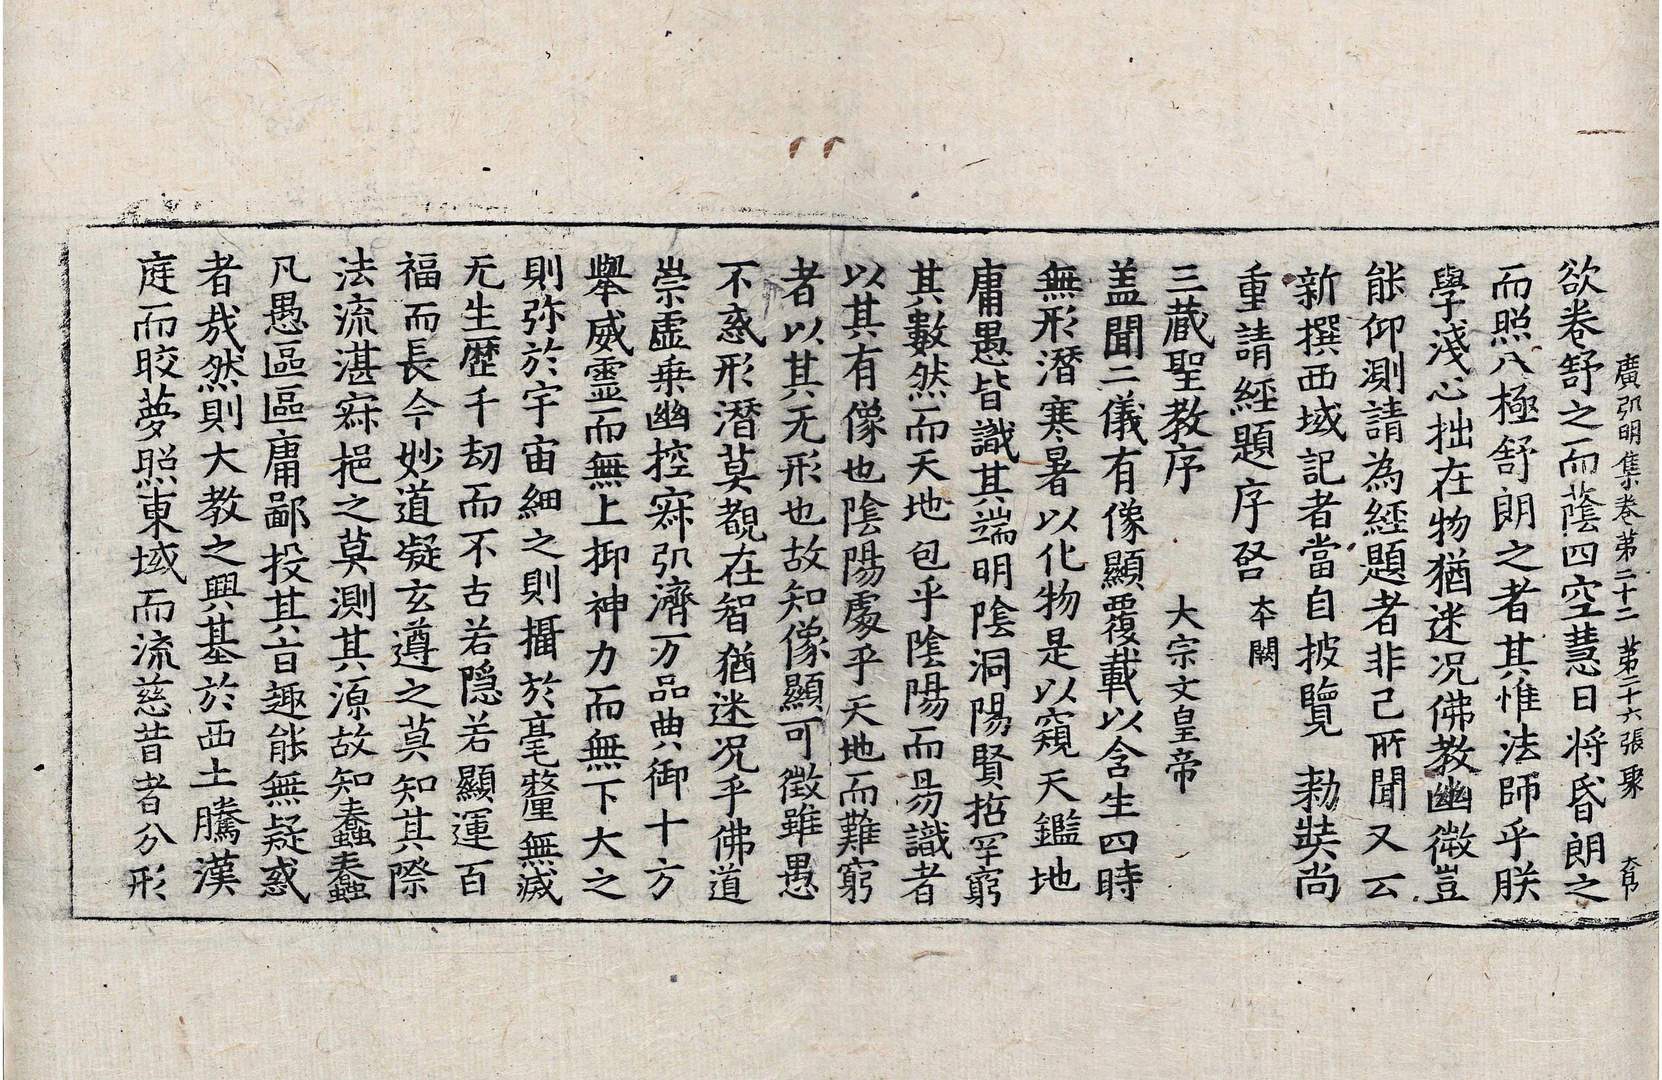 廣弘明集卷第二十二 第二十六張 聚
欲卷舒之而蔭四空慧日將昏朗之
而照八極舒朗之者其惟法師乎朕
學淺心拙在物猶迷况佛教幽微豈
能仰測請為經題者非己所聞又云
新撰西域記者當自披覽 勅奘尚
重請經題序啓 本闕
三藏聖教序 大宗文皇帝
盖聞二儀有像顯覆載以含生四時
無形潛寒暑以化物是以窺天鑑地
庸愚皆識其端明陰洞陽賢哲罕窮
其數然而天地包乎陰陽而易識者
以其有像也陰陽處乎天地而難窮
者以其无形也故知像顯可徵雖愚
不惑形潛莫覩在智猶迷况乎佛道
崇虛乗幽控寂弘濟万品典御十方
舉威靈而無上抑神力而無下大之
則弥於宇宙細之則攝於毫氂無滅
无生歷千劫而不古若隐若顯運百
福而長今妙道凝玄遵之莫知其際
法流湛寂挹之莫測其源故知蠢蠢
凡愚區區庸鄙投其旨趣能無疑惑
者㦲然則大教之興基於西土騰漢
庭而皎夢照東域而流慈昔者分形